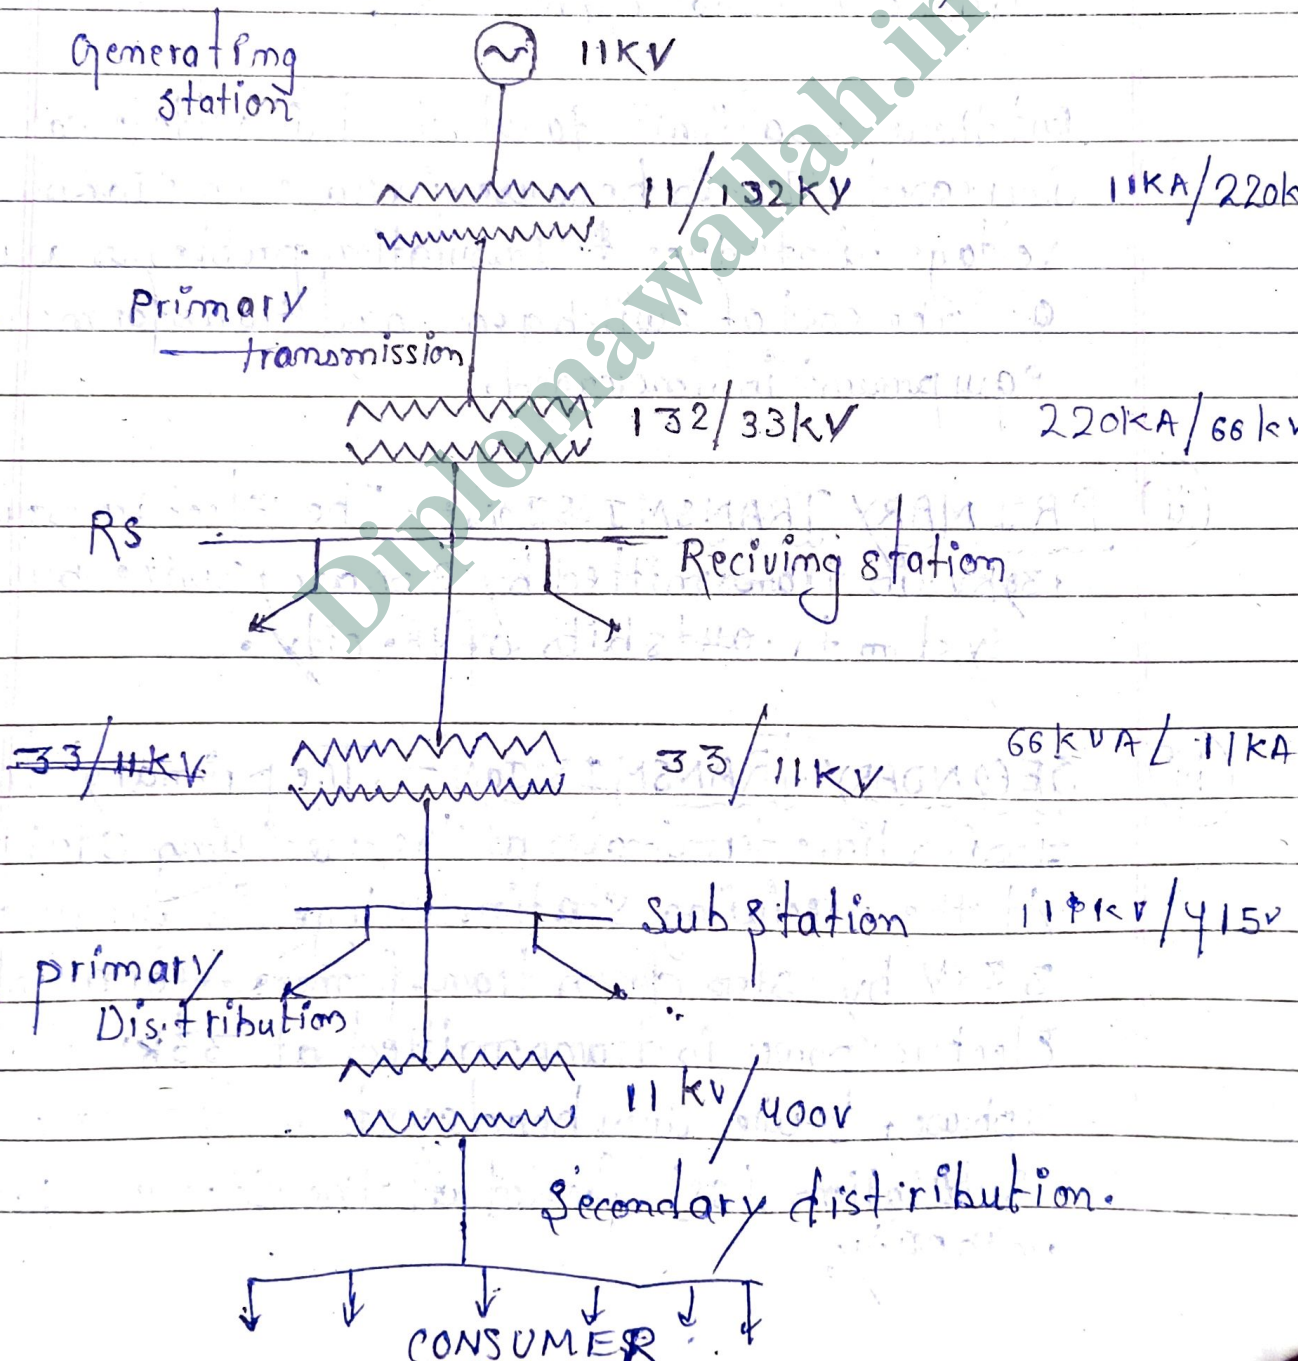 Generating
station
11KV
11/132KV
11KA/220k
Primary
transmission
132/33kV
220KA/66kv
RS
Reciving station
33/11KV
33/11KV
66KVA/11KA
Substation
11KV/415v
primary
Distribution
11kv/400v
Secondary distribution.
CONSUMER
Diplomawallah.in